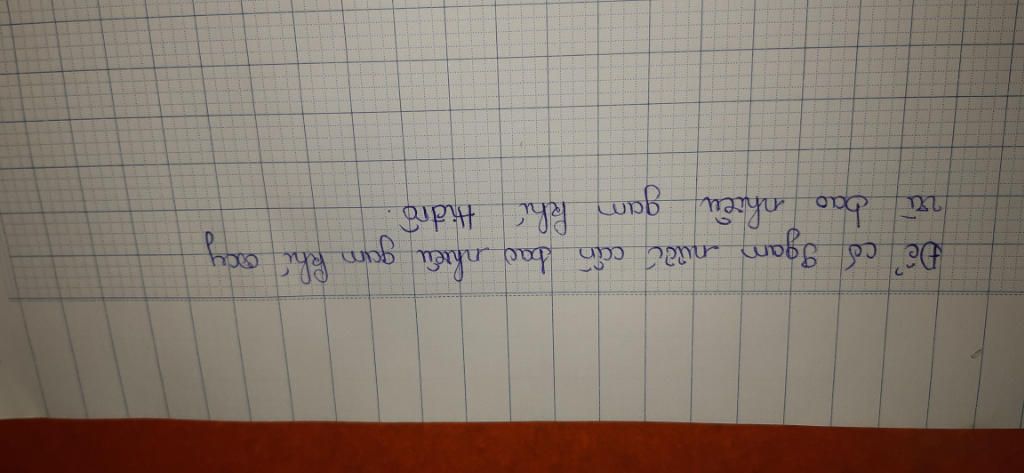 Để có 9gam nước cần bao nhiêu gam khí oxy
và bao nhiêu gam khí Hidrô.